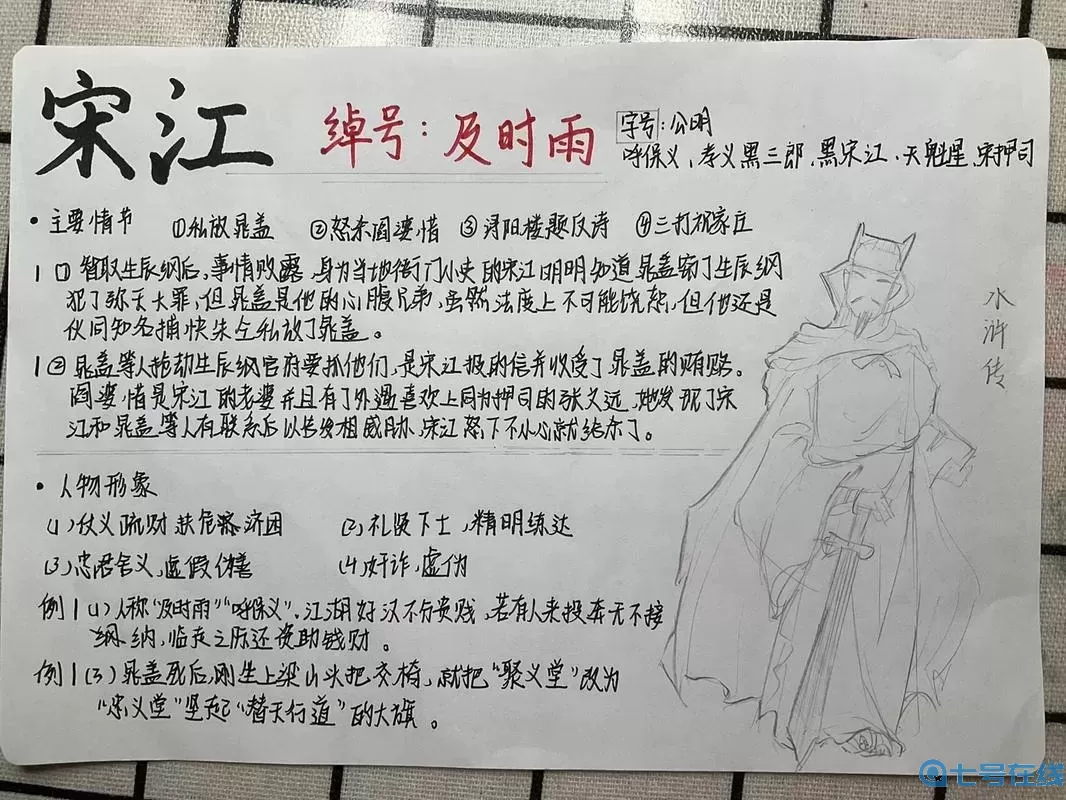 宋江
绰号：及时雨
字号：公明
呼保义、孝义黑三郎、黑宋江、天魁星、宋押司
• 主要情节 ①私放晁盖 ②怒杀阎婆惜 ③浔阳楼题反诗 ④三打祝家庄
①智取生辰纲后，事情败露，身为当地衙门小吏的宋江明明知道晁盖窃了生辰纲
犯了弥天大罪，但晁盖是他的心腹兄弟，虽然法度上不可能饶恕，但他还是
伙同知名捕快朱仝私放了晁盖。
②晁盖等人抢劫生辰纲官府要抓他们，是宋江报的信并收受了晁盖的贿赂。
阎婆惜是宋江的老婆并且有了外遇喜欢上同为押司的张文远，她发现了宋
江和晁盖等人有联系后以告发相威胁，宋江怒下不小心就给杀了。
• 人物形象
(1)仗义疏财，扶危济困 (2)礼贤下士，精明练达
(3)忠君舍义，虚假伪善 (4)奸诈，虚伪
例 (1)人称“及时雨”“呼保义”，江湖好汉不分贵贱，若有人来投奔无不接
纳，临走之际还资助钱财。
例 (3)晁盖死后，刚坐上梁山头把交椅，就把“聚义堂”改为
“忠义堂”竖起“替天行道”的大旗。
水浒传
七号在线